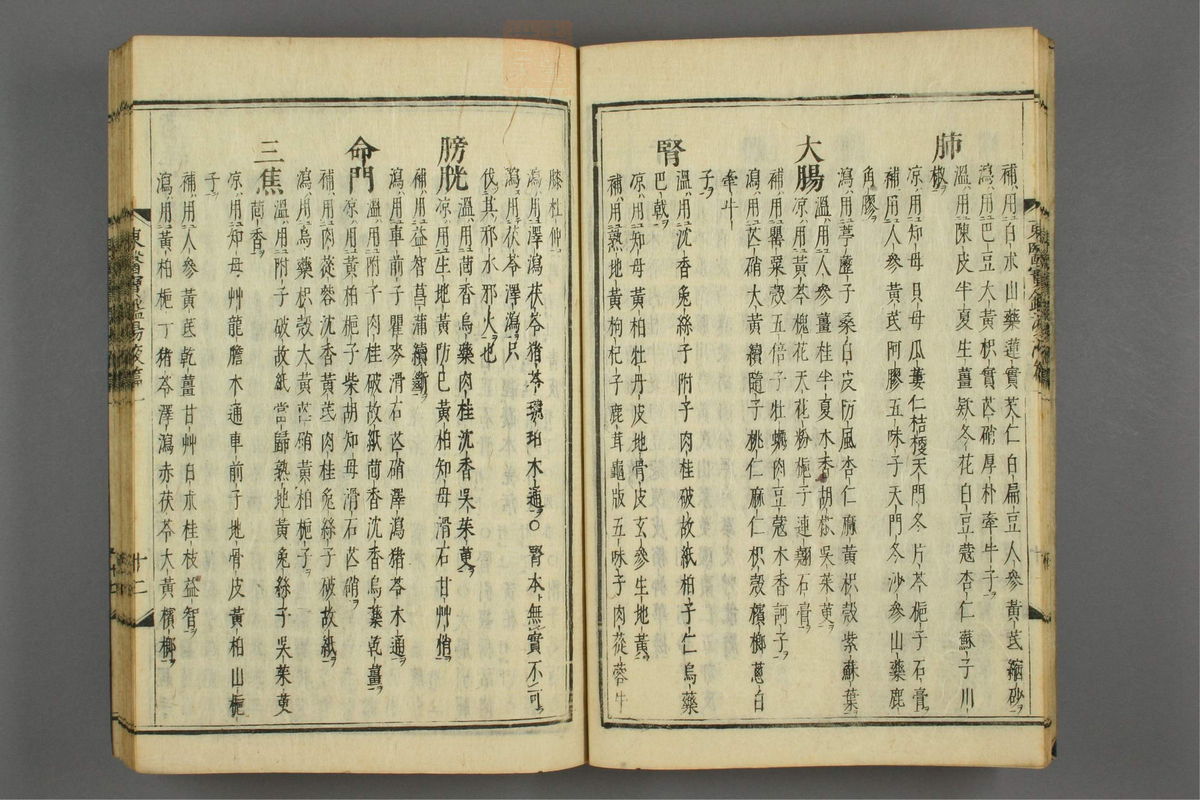 補用白朮山藥蓮實芡仁白扁豆人參黃芪縮砂
瀉用巴豆大黃枳實芒硝厚朴牽牛子
肺
溫用陳皮半夏生薑款冬花白豆蔻杏仁蘇子川
椒
凉用知母貝母瓜蔞仁桔梗天門冬片芩梔子石膏
補用人參黃芪阿膠五味子天門冬沙參山藥鹿
角膠
瀉用葶藶子桑白皮防風杏仁麻黃枳殼紫蘇葉
大腸
溫用人參薑桂半夏木香胡椒吳茱萸
凉用黃芩槐花天花粉梔子連翹石膏
補用罌粟殼五倍子牡蠣肉豆蔻木香訶子
瀉用芒硝大黃續隨子桃仁麻仁枳殼檳榔蔥白
牽牛
子
腎
溫用沈香兔絲子附子肉桂破故紙柏子仁烏藥
巴戟
凉用知母黃柏牡丹皮地骨皮玄參生地黃
補用熟地黃枸杞子鹿茸龜版五味子肉蓯蓉牛
膝杜仲
瀉用澤瀉茯苓猪苓琥珀木通○腎本無實不可
瀉茯苓澤瀉只
伐其邪水邪火也
膀胱
溫用茴香烏藥肉桂沈香吳茱萸
凉用生地黃防己黃柏知母滑石甘艸梢
補用益智菖蒲續斷
瀉用車前子瞿麥滑石芒硝澤瀉猪苓木通
命門
溫用附子肉桂破故紙茴香沈香烏藥乾薑
凉用黃柏梔子柴胡知母滑石芒硝
補用肉蓯蓉沈香黃芪肉桂兔絲子破故紙
瀉用烏藥枳殼大黃芒硝黃柏梔子
三焦
溫用附子破故紙當歸熟地黃兔絲子吳茱萸
茴香
凉用知母艸龍膽木通車前子地骨皮黃柏山梔
子
補用人參黃芪乾薑甘艸白朮桂枝益智
瀉用黃柏梔丁猪苓澤瀉赤茯苓大黃檳榔
東醫寶鑑湯液篇一
十二